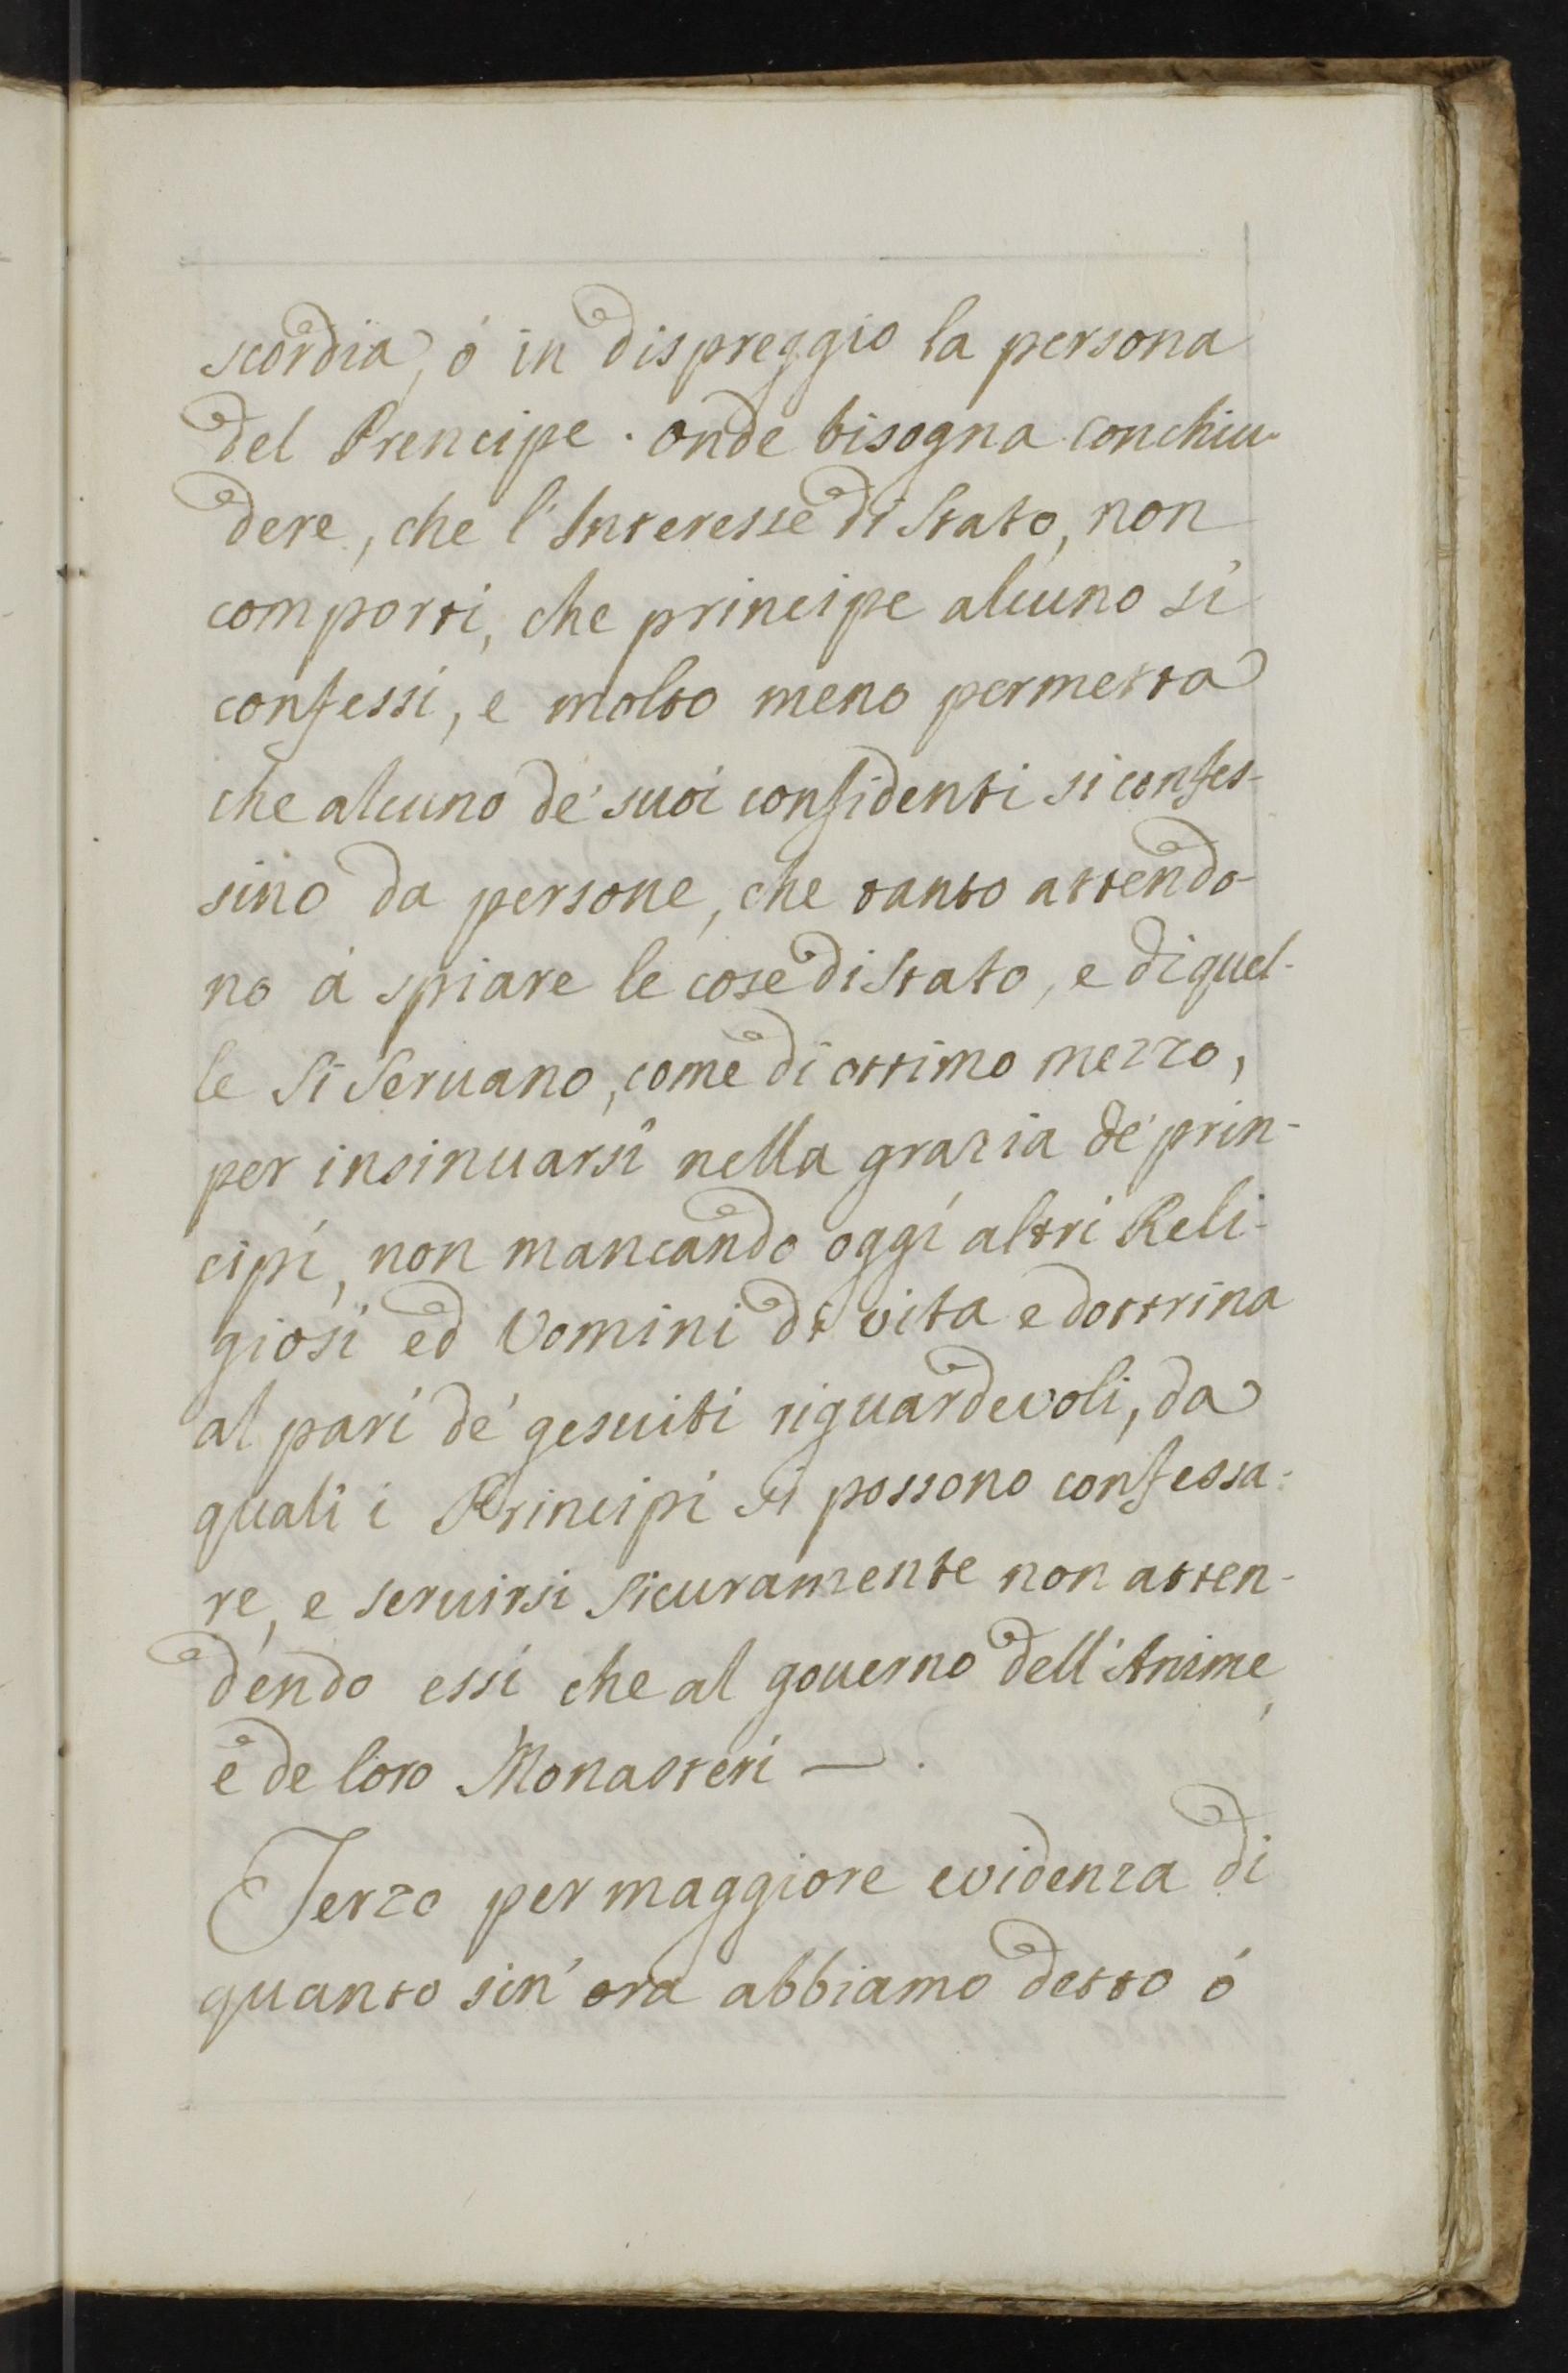 scordia, ó in dispreggio la persona
del Prencipe. onde bisogna conchiu-
dere, che l'Interesse di Stato, non
comporti, che principe alcuno si
confessi, e molto meno permetta
che alcuno de' suoi confidenti si confes-
sino da persone, che tanto attendo-
no á spiare le cose di Stato, e di quel-
le Si Seruano, come di ottimo mezzo,
per insinuarsi nella grazia de' prin-
cipi, non mancando oggi altri Reli-
giosi ed Vomini di vita e dottrina
al pari de' gesuiti riguardevoli, da
quali i Principi si possono confessa-
re, e seruirsi Sicuramente non atten-
dendo essi che al gouerno dell'Anime,
e de loro Monasteri —.
Terzo per maggiore evidenza di
quanto sin' ora abbiamo detto ó